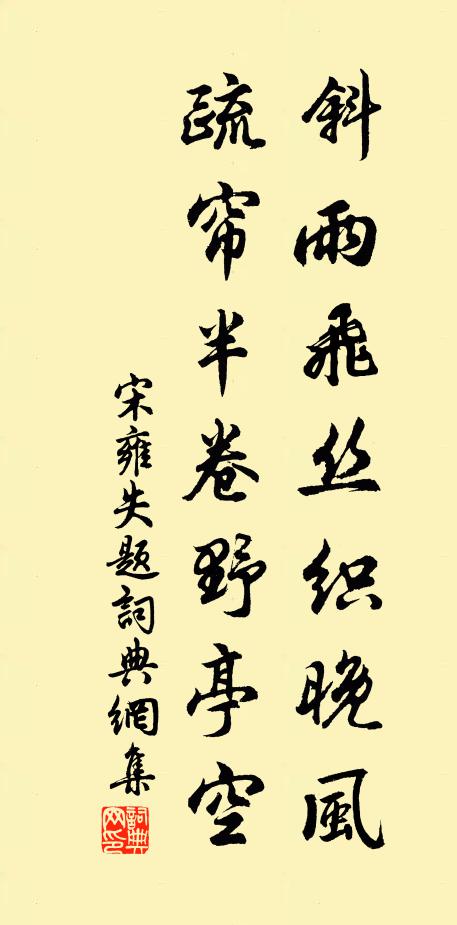 斜雨飛丝织晚風
疏帘半卷野亭空
宋雍失题詞典網集
詞典网印